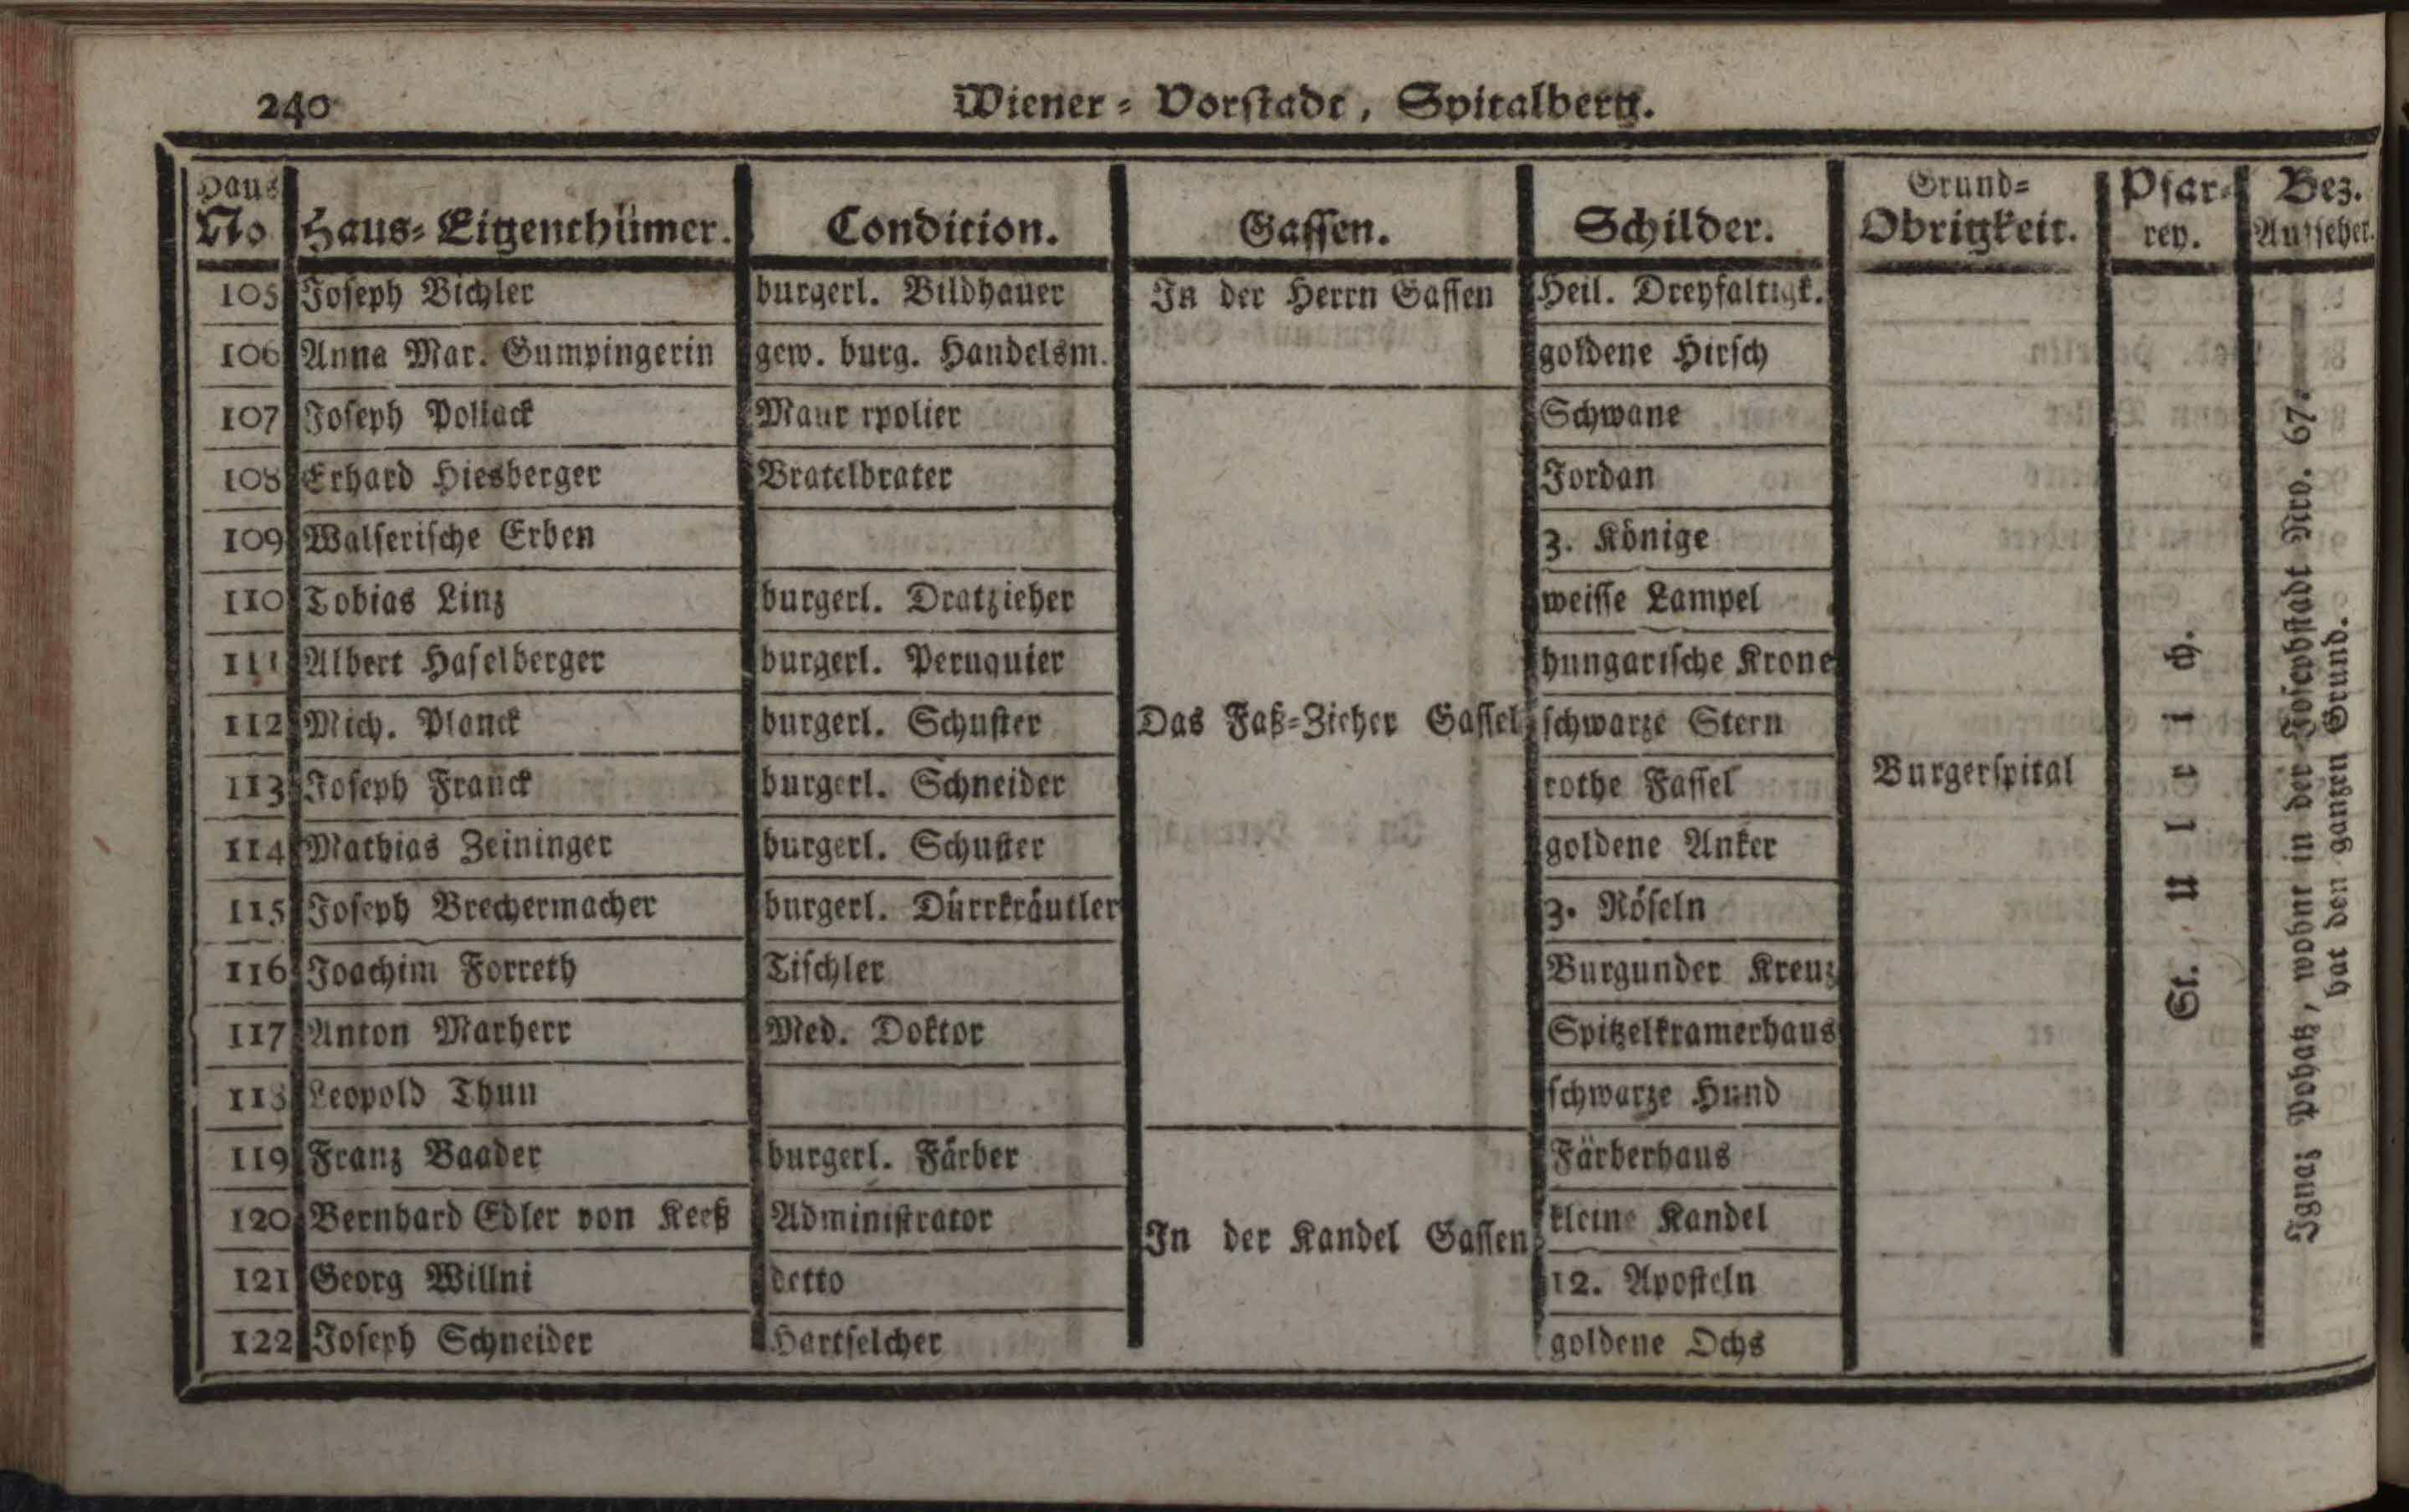 240
Wiener = Vorstadt, Spitalberg.
Haus No | Haus= Eigenthümer. | Condition. | Gassen. | Schilder. | Grund= Obrigkeit. | Pfar= rey. | Bez. Aufseher.
105 | Joseph Bichler | burgerl. Bildhauer | In der Herrn Gassen | Heil. Dreyfaltigk.
106 | Anna Mar. Gumpingerin | gew. burg. Handelsm. | goldene Hirsch
107 | Joseph Pollack | Maur rpolier | Schwane
108 | Erhard Hiesberger | Bratelbrater | Jordan
109 | Walserische Erben | 3. Könige
110 | Tobias Linz | burgerl. Dratzieher | weisse Lampel
111 | Albert Haselberger | burgerl. Peruquier | hungarische Krone
112 | Mich. Planck | burgerl. Schuster | Das Faß=Zieher Gassel | schwarze Stern
113 | Joseph Franck | burgerl. Schneider | rothe Fassel | Burgerspital
114 | Mathias Zeininger | burgerl. Schuster | goldene Anker
115 | Joseph Brechermacher | burgerl. Dürrkräutler | 3. Röseln
116 | Joachim Forreth | Tischler | Burgunder Kreuz
117 | Anton Marherr | Med. Doktor | Spitzelkramerhaus
118 | Leopold Thun | schwarze Hund
119 | Franz Baader | burgerl. Färber | Färberhaus
120 | Bernhard Edler von Keeß | Administrator | In der Kandel Gassen | kleine Kandel
121 | Georg Willni | detto | 12. Aposteln
122 | Joseph Schneider | Hartselcher | goldene Ochs
St. Ulrich.
Ignaz Pohatz, wohnt in der Josephstadt Nro. 67.
hat den ganzen Grund.